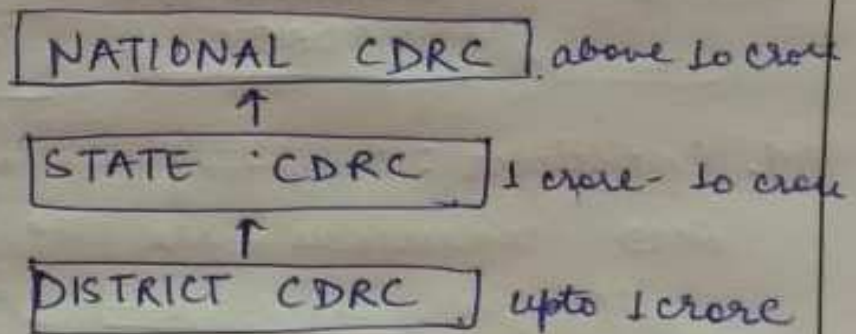 NATIONAL CDRC above 10 crore
↑
STATE CDRC 1 crore - 10 crore
↑
DISTRICT CDRC upto 1 crore